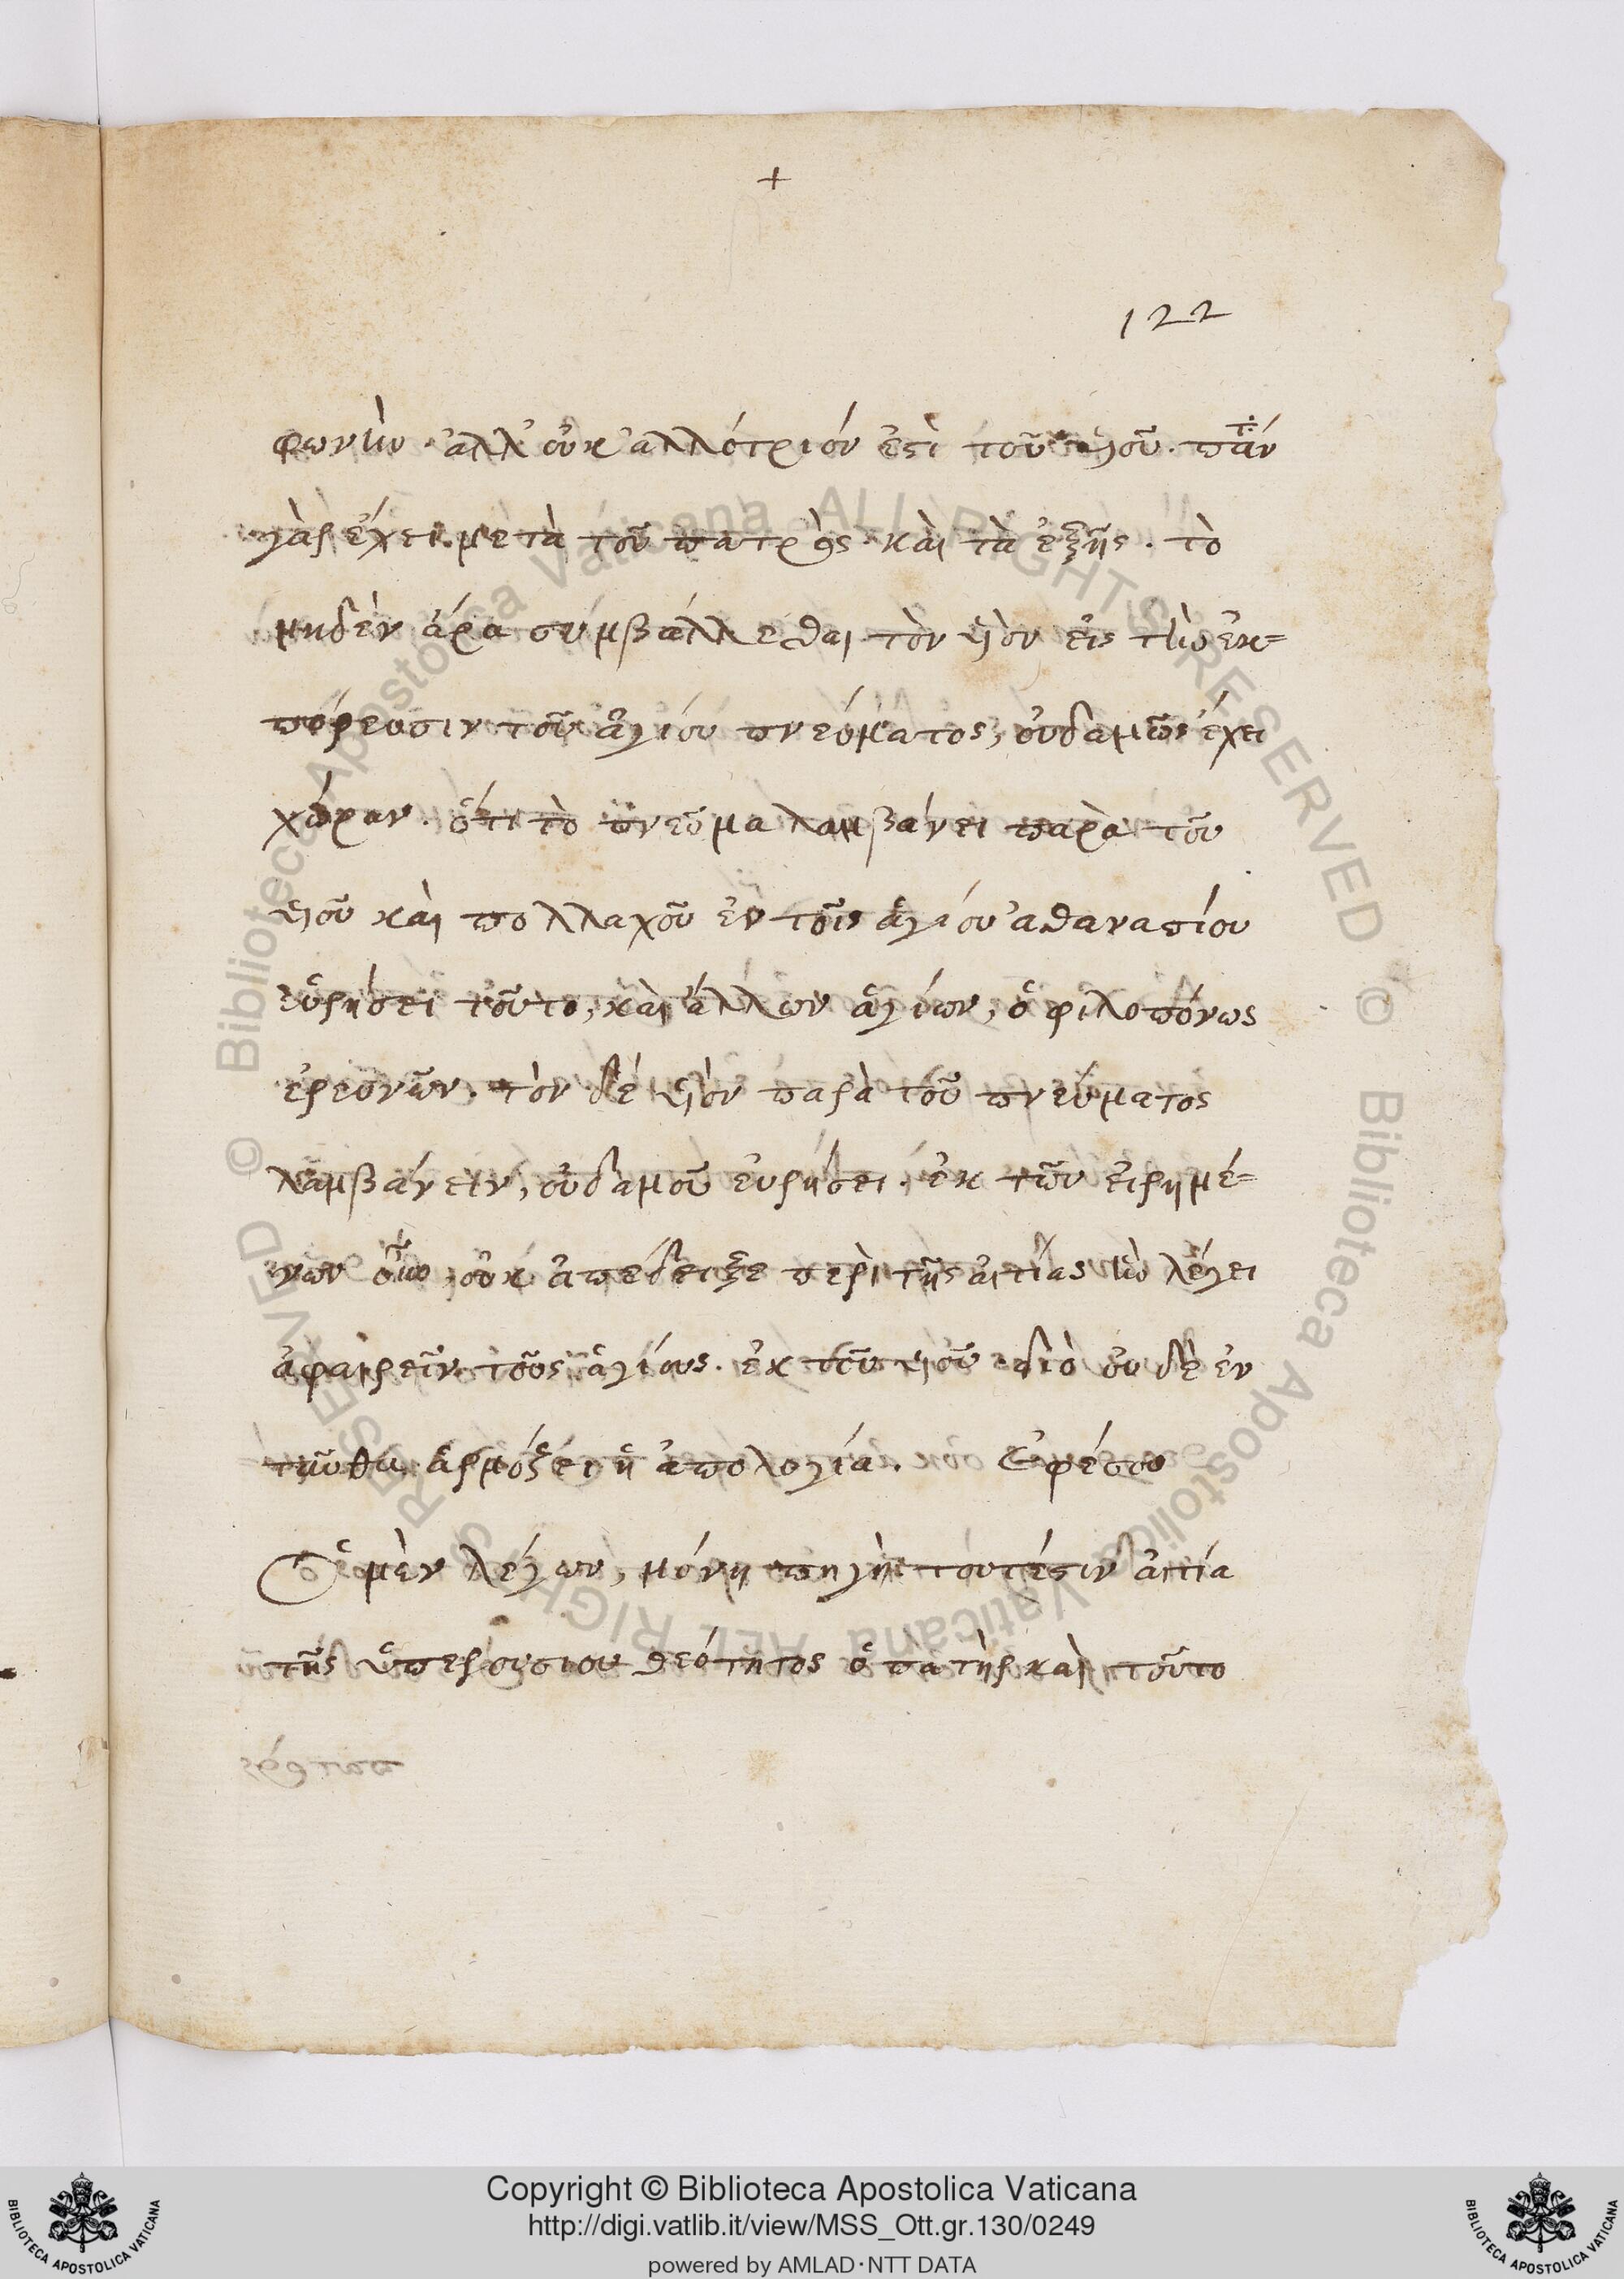 +
122
φωνὴν· ἀλλ' οὐκ ἀλλότριόν ἐστὶ τοῦ υἱοῦ. πάντα
γὰρ ἔχει μετὰ τοῦ πατρὸς καὶ τὰ ἑξῆς. τὸ
μηδὲν ἄρα συμβάλλεσθαι τὸν υἱὸν εἰς τὴν ἐκ=
πόρευσιν τοῦ ἁγίου πνεύματος, οὐδαμῶς ἔχει
χώραν. ὅτι τὸ πνεῦμα λαμβάνει παρὰ τοῦ
υἱοῦ καὶ πολλαχοῦ ἐν τοῖς ἁγίου ἀθανασίου
εὑρήσει τοῦτο, καὶ ἄλλων ἁγίων, ὁ φιλοπόνως
ἐρευνῶν. τὸν δὲ υἱὸν παρὰ τοῦ πνεύματος
λαμβάνειν, οὐδαμοῦ εὑρήσει. ἐκ τῶν εἰρημέ=
νων οὖν, οὐκ ἀπέδειξε περὶ τῆς αἰτίας ἣν λέγει
ἀφαιρεῖν τοὺς ἁγίους. ἐκ τοῦ υἱοῦ διὸ οὐδὲ ἐν
ταῦθα ἁρμόξει ἡ ἀπολογία. Ἐφέσου
Ὁ μὲν λέγων, μόνη πηγὴ τουτέστιν αἰτία
τῆς ὑπερουσίου θεότητος ὁ πατὴρ καὶ τοῦτο
Copyright © Biblioteca Apostolica Vaticana
http://digi.vatlib.it/view/MSS_Ott.gr.130/0249
powered by AMLAD·NTT DATA